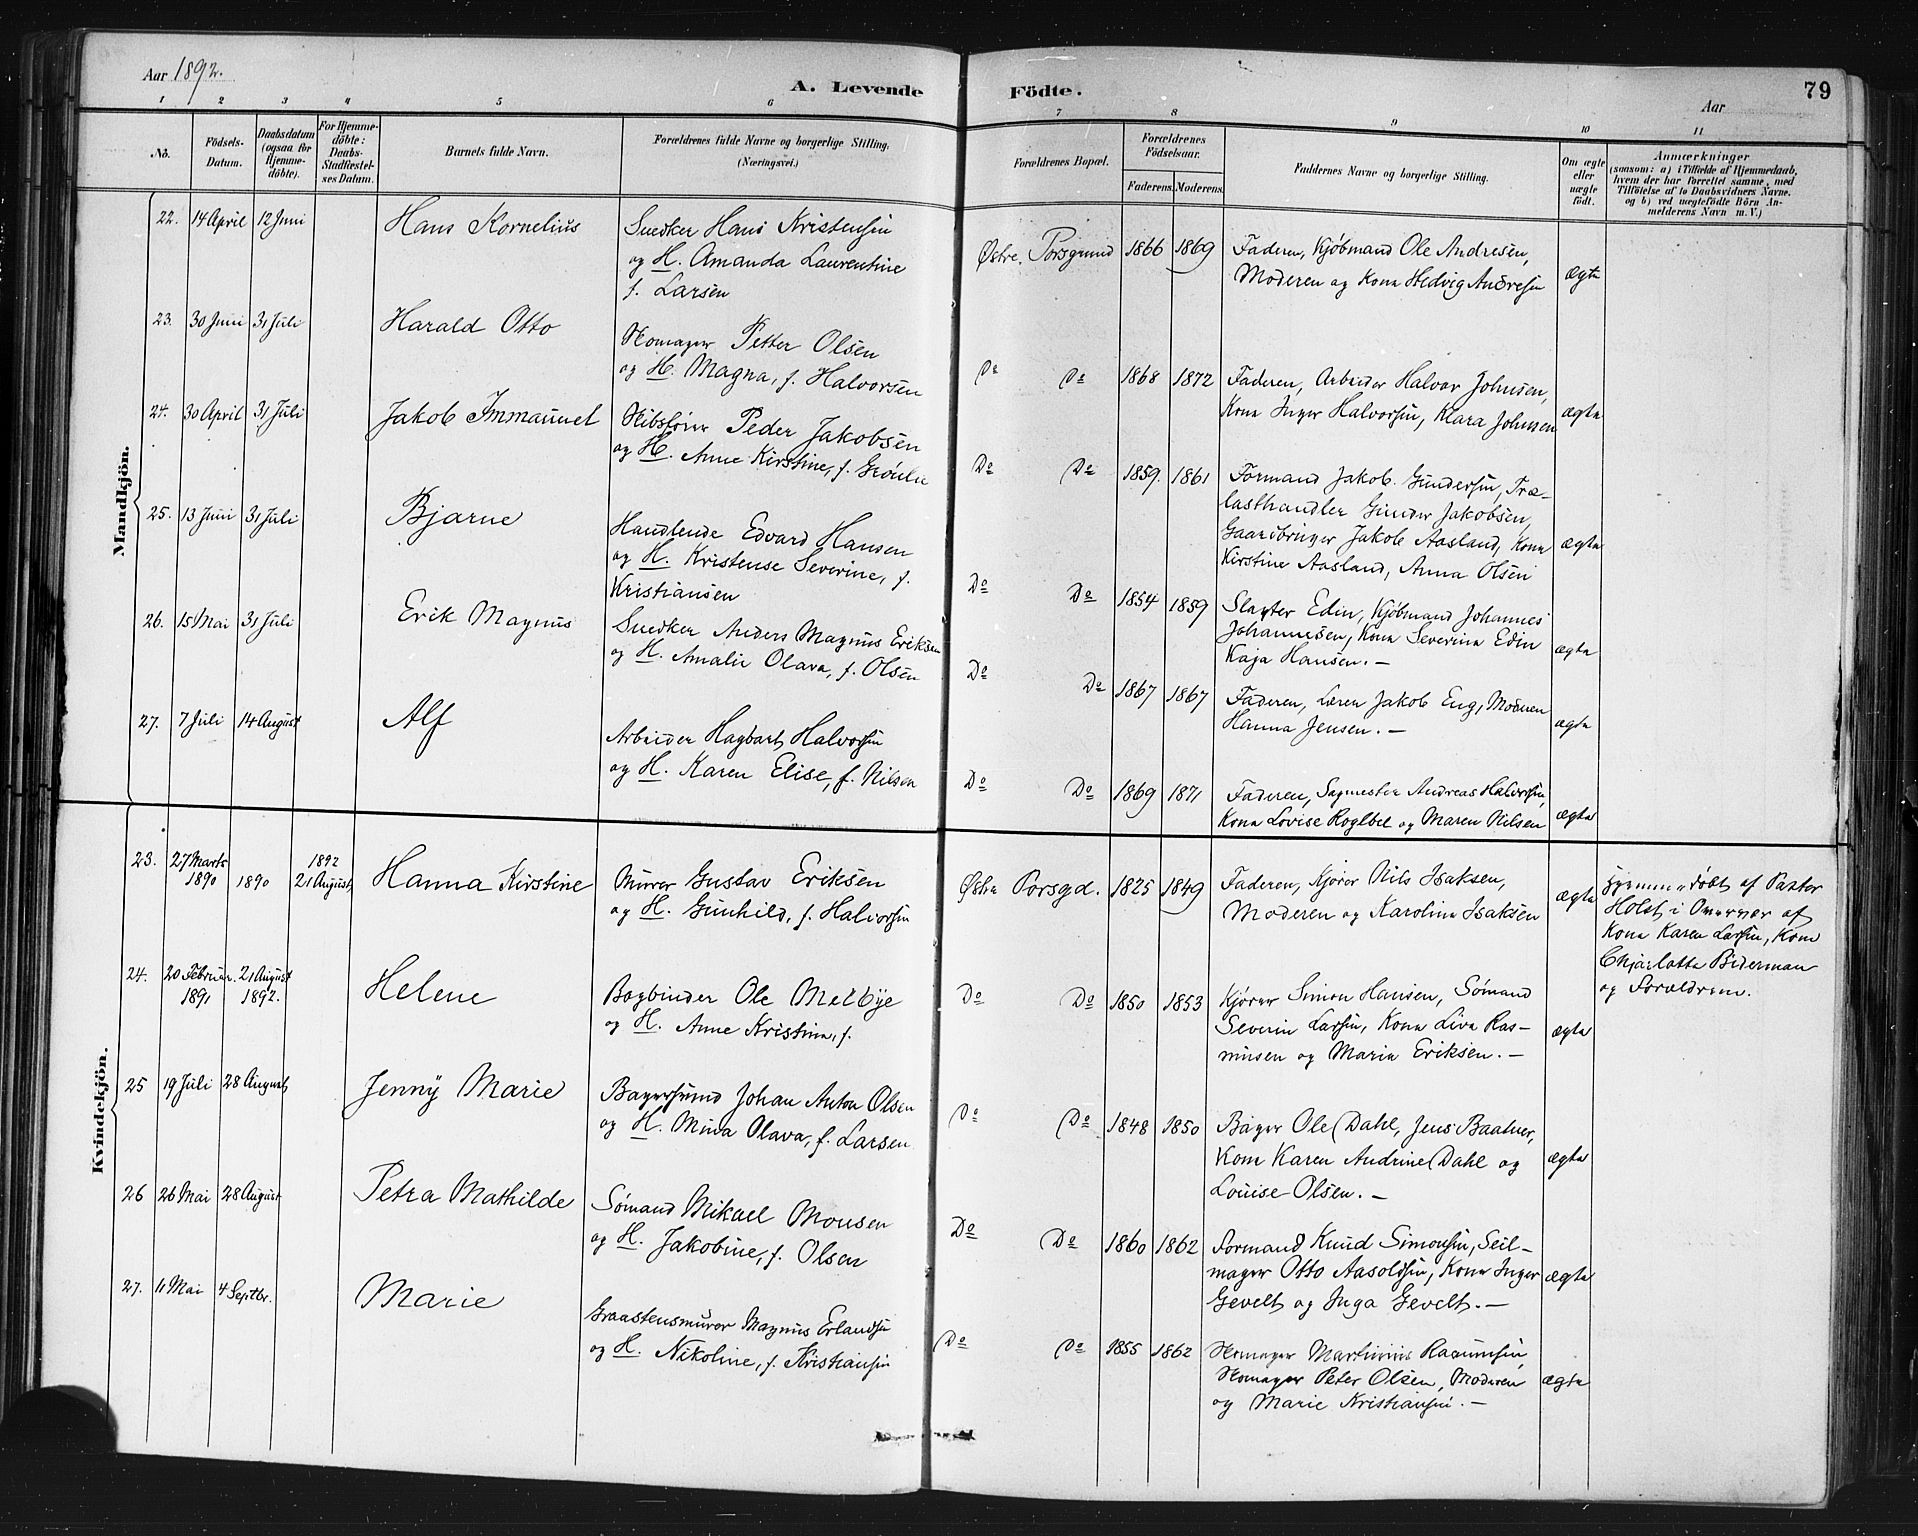 Aar 1892.
A. Levende Födte.
Aar
79
1 2 3 4 5 6 7 8 9 10 11
No.
Födsels-Datum.
Daabsdatum (ogsaa for Hjemme-döbte).
For Hjemme-döbte: Daabs-Stadfæstel-ses Datum.
Barnets fulde Navn.
Forældrenes fulde Navne og borgerlige Stilling. (Næringsvei.)
Forældrenes Bopæl.
Forældrenes Födselsaar.
Faderens. Moderens.
Faddernes Navne og borgerlige Stilling.
Om ægte eller uægte födt.
Anmærkninger
(saasom: a) i Tilfælde af Hjemmedaab, hvem der har forrettet samme, med Tilföielse af to Daabsvidners Navne. og b) ved uægtefödte Börn An-melderens Navn m. V.)
Mandkjön.
22. 14 April 12 Juni Hans Kornelius
Snedker Hans Kristensen
og H. Amanda Laurentine
f. Larsen
Østre Porsgrund 1866 1869
Faderen, Kjøbmand Ole Andresen,
Moderen og Kona Hedvig Andresen
ægte
23. 30 Juni 31 Juli Harald Otto
Skomager Petter Olsen
og H. Magna, f. Halvorsen
Do Do 1868 1872
Faderen, Arbeider Halvor Johnsen,
Kona Inger Halvorsen, Klara Johnsen
ægte
24. 30 April 31 Juli Jakob Immanuel
Skibsfører Peder Jakobsen
og H. Anne Kirstine, f.
Do Do 1859. 1861
Formand Jakob Gundersen, Træ-
lasthandler Gunder Jakobsen,
Gaardbruger Jakob Aasland, Kona
Kirstine Aasland, Anna Olsen
ægte
25. 13 Juni 31 Juli Bjarne
Handlende Edvard Hansen
og H. Kristense Severine, f.
Kristiansen
Do Do 1854 1859
Slagter Edin, Kjøbmand Johannes
Johannesen, Kona Severina Edin
Kaja Hansen. —
ægte
26. 15 Mai 31 Juli Erik Magnus
Snedker Anders Magnus Eriksen
og H. Amalie Olava, f. Olsen
Do Do 1867 1867
Faderen, Lærer Jakob Eng, Moderen
Hanna Jensen. —
ægte
27. 7 Juli 14 August Alf
Arbeider Hagbart Halvorsen
og H. Karen Elise, f. Nilsen
Do Do 1869 1871
Faderen, Sagmester Andreas Halvorsen,
Kona Lovise og Maren Nilsen
ægte
Kvindekjön.
23. 27 Marts 1890 1890 1892 21 August Hanna Kirstine
Murer Gustav Eriksen
og H. Gunhild, f. Halvorsen
Østre Porsgd. 1825 1849
Faderen, Kjører Nils Isaksen,
Moderen og Karolina Isaksen
ægte
Hjemmedøbt af Pastor
Holst i Overvær af
Kona Karen Larsen, Kona
Chjarlotta Biderman
og Forældrene.
24. 20 Februar 1891 21 August 1892. Helene
Bogbinder Ole Melbye
og H. Anne Kristina, f.
Do Do 1850 1853
Kjører Simon Hansen, Sømand
Severin Larsen, Kona Liva Ras-
mussen og Maria Eriksen. —
ægte
25 19 Juli 28 August Jenny Marie
Bagersvend Johan Anton Olsen
og H. Mina Olava, f. Larsen
Do Do 1848 1850
Bager Ole Dahl, Jens Baatner,
Kona Karen Andrine Dahl og
Louise Olsen. —
ægte
26 26 Mai 28 August Petra Mathilde
Sømand Mikael Monsen
og H. Jakobine, f. Olsen
Do Do 1860 1862
Formand Knud Simonsen, Seil-
mager Otto Aasoldsen, Kona Inger
Gevelt og Inga Gevelt. —
ægte
27. 11 Mai 4 Septbr. Marie
Graastensmurer Magnus Erlandsen
og H. Nikoline, f. Kristiansen
Do Do 1855 1862
Skomager Martinius
Skomager Peter Olsen, Moderen
og Marie Kristiansen. —
ægte